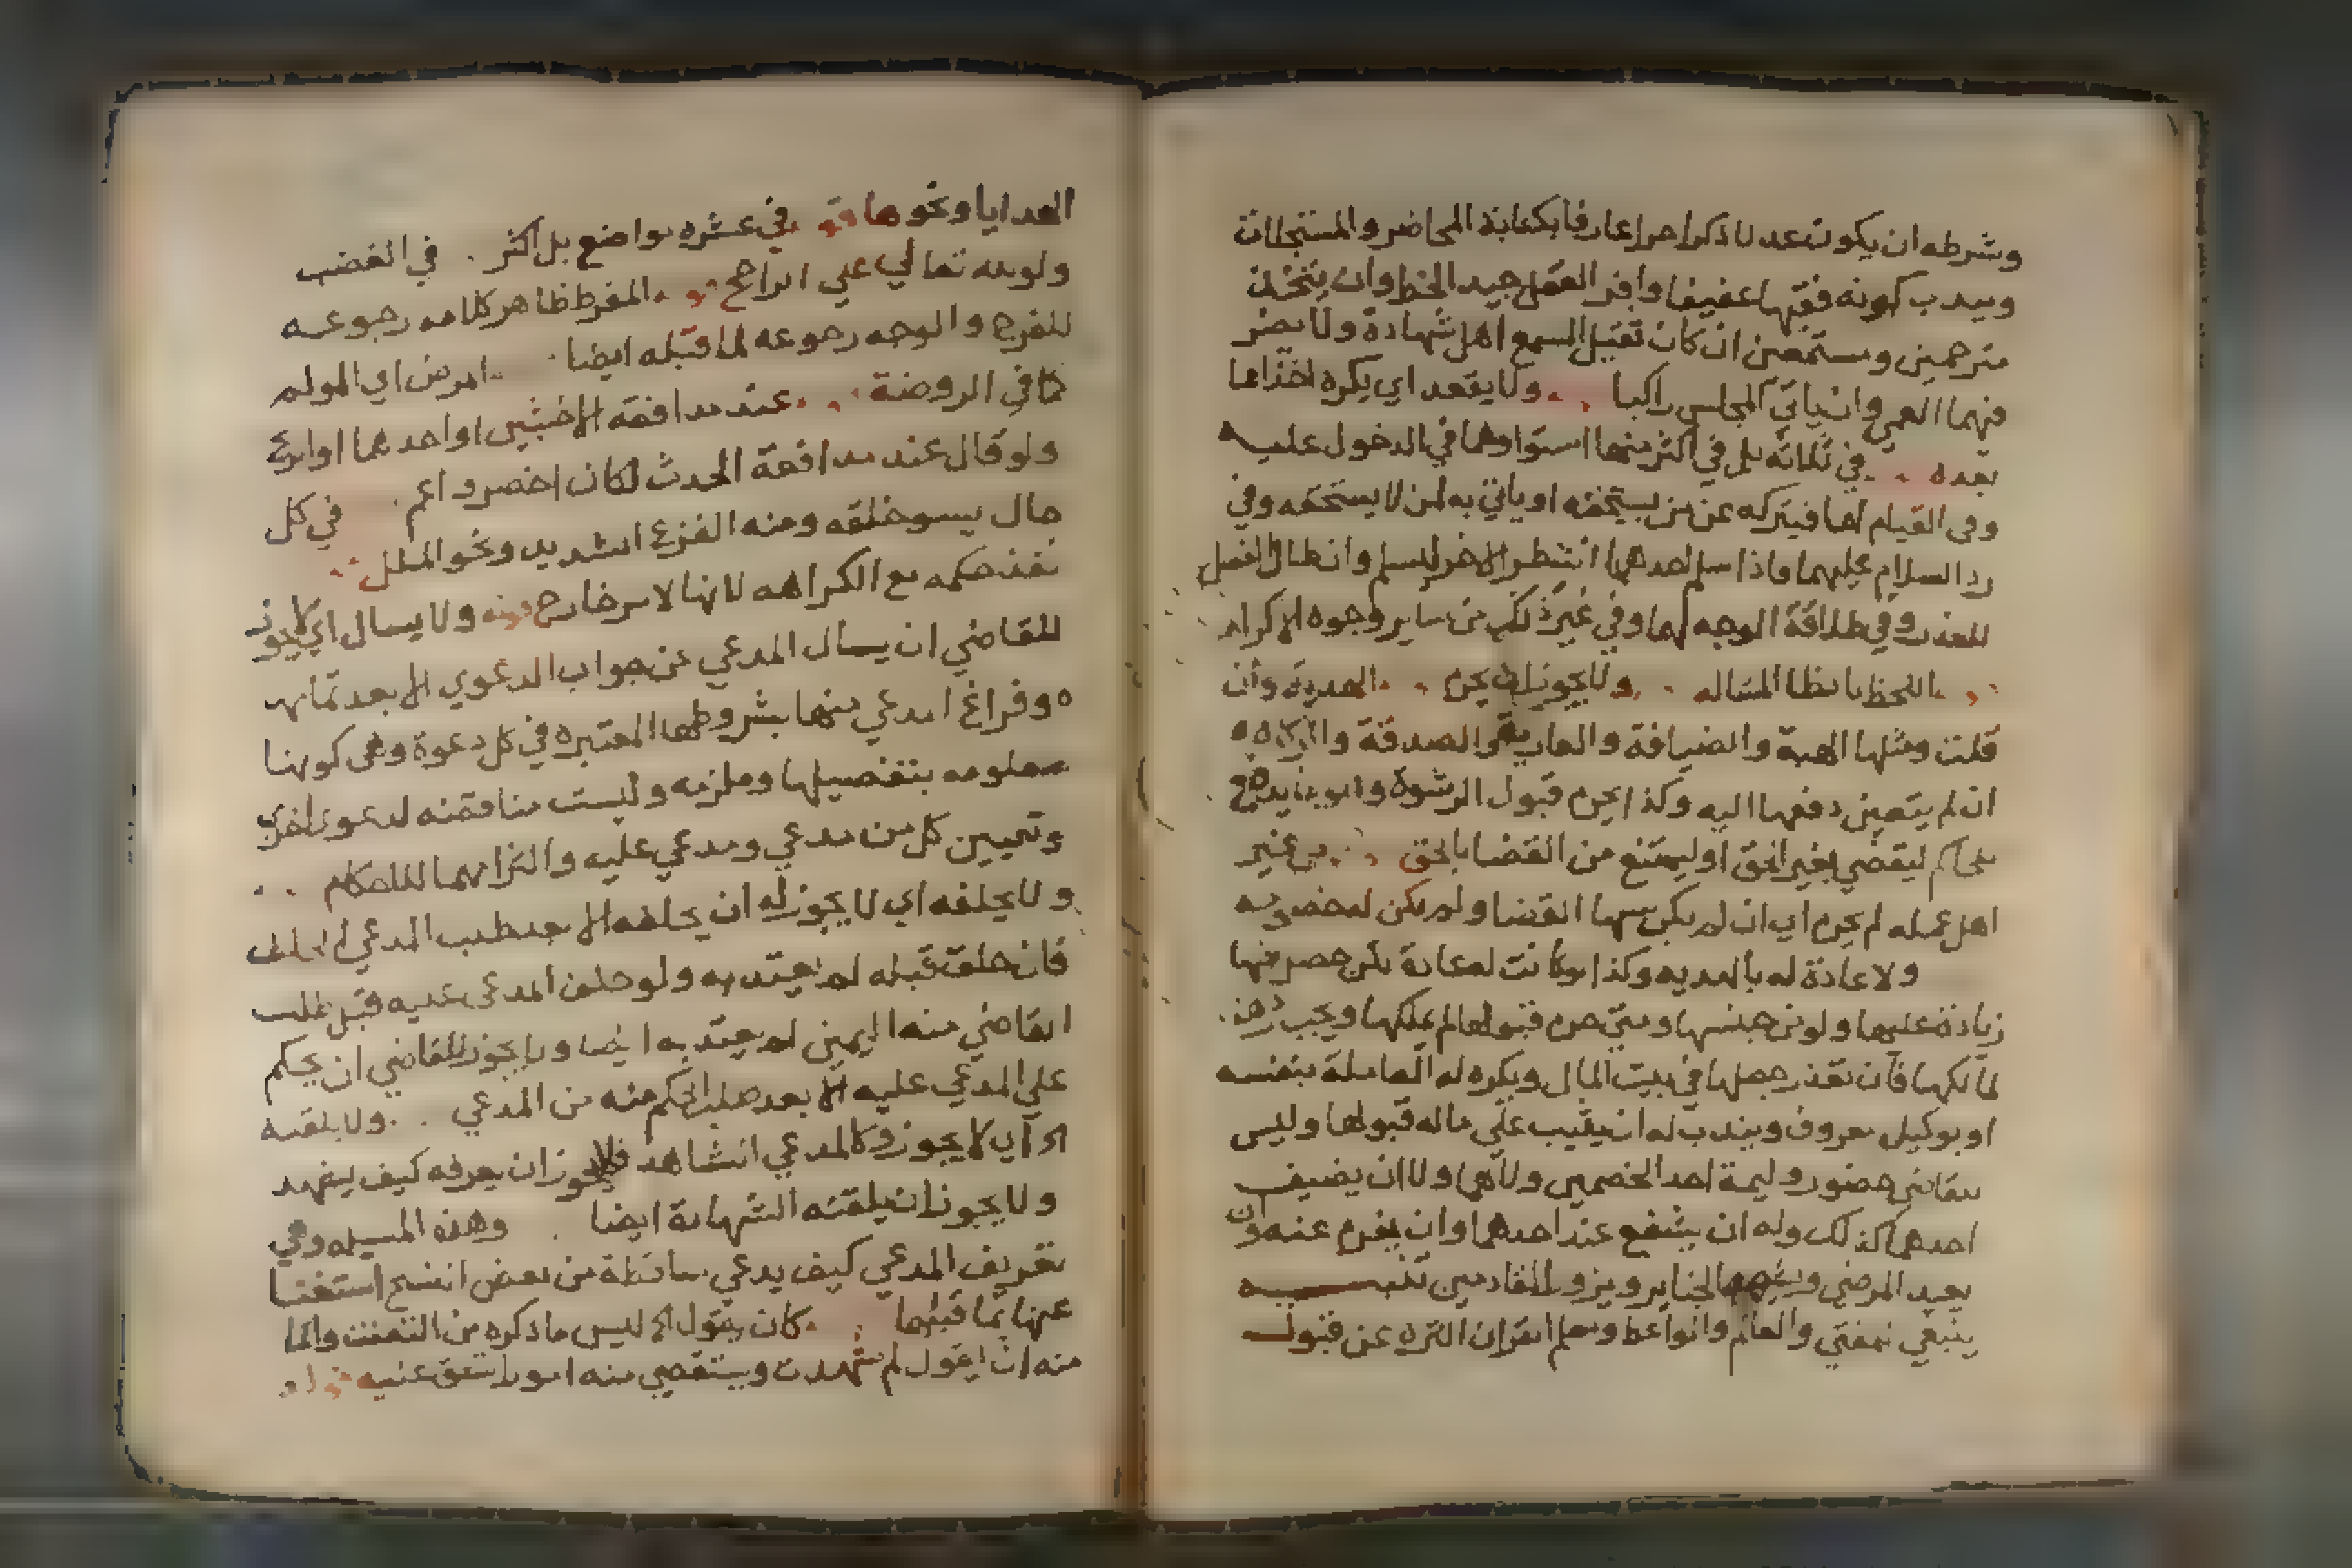 وشرطه ان يكون عدلا ذكرا حرا عارفا بكتابة المحاضر والسجلات
ويندب كونه فقيها عفيفا وافر العقل جيد الخط وان يتخذ
مترجمين ومستمعين ان كان ثقيل السمع اهل شهادة ولا يضر
فيهما العمي وان ياتي المجلس راكبا ولا يقعد اي يكره اتخاذها
بعده في ثلاثة بل في اكثر منها استواوهما في الدخول عليه
وفي القيام لهما فيتركه عن من يستحقه او ياتي به لمن لا يستحقه وفي
رد السلام عليهما واذا سلم احدهما انتظر الاخر ليسلم وان طال الفصل
للعذر وفي طلاقة الوجه لهما وفي غير ذلك من ساير وجوه الاكرام
اللحظ بالظا المشاله ولا يجوز اي يحرم الهدية وان
قلت ومثلها الهبة والضيافة والعارية والصدقة والزكاة
ان لم يتعين دفعها اليه وكذا يحرم قبول الرشوة وهو ما يدفع
للحاكم ليقضي بغير الحق او ليمتنع من القضا بالحق من غير
اهل عمله لم يحرم اي ان لم يكن سببها القضا ولم يكن له خصومة
ولا عادة له بالهديه وكذا لو كانت له عادة لكن حصر فيها
زيادة عليها ولو من جنسها ومتي حرم قبولها لم يملكها ويجب ردها
لمالكها فان تعذر جعلها في بيت المال ويكره له المعاملة بنفسه
او بوكيل معروف ويندب له ان يثيب علي ماله قبولها وليس
للقاضي حضور وليمة احد الخصمين ولا هي ولا ان يضيف
احدهما كذلك وله ان يشفع عند احدهما وان يغرم عنه وان
يعيد المرضي ويشهد الجنايز ويزور القادمين تنبيه
ينبغي للمفتي والعالم والواعظ ومعلم القران التنزه عن قبول
الهدايا ونحوها في عشره مواضع بل اكثر في الغضب
ولو لله تعالي علي الراجح المفرط ظاهر كلامه رجوعه
للفرح والوجه رجوعه لما قبله ايضا المرض اي المولم
كما في الروضة عند مدافعة الاخبثين او احدهما او الريح
ولو قال عند مدافعة الحدث لكان اخصر واعم في كل
حال يسو خلقه ومنه الفزع الشديد ونحو الملل
نفذ حكمه مع الكراهه لانها لامر خارج ولا يسال اي لا يجوز
للقاضي ان يسال المدعي عن جواب الدعوي الا بعد تمامها
وفراغ المدعي منها بشروطها المعتبره في كل دعوة وهي كونها
معلومه بتفصيلها وملزمه وليست مناقضه لدعوي اخري
وتعيين كل من مدعي ومدعي عليه والتزامهما للاحكام
ولا يحلفه اي لا يجوز له ان يحلفه الا بعد طلب المدعي
فان حلف قبله لم يعتد به ولو حلف المدعي عليه قبل طلب
القاضي منه اليمين لم يعتد به ايضا ولا يجوز للقاضي ان يحكم
علي المدعي عليه الا بعد طلب الحكم منه من المدعي ولا يلقنه
اي لا يجوز وكالمدعي الشاهد فلا يجوز ان يعرفه كيف يشهد
ولا يجوز ان يلقنه الشهادة ايضا وهذه المسيله وهي
تعريف المدعي كيف يدعي ساقطة من بعض النسخ استغنا
عنها بما قبلها كان يقول له ليس ما ذكره من التعنت وانما
منه ان يقول لم شهدت ويستقصي منه امورا تشق عليه